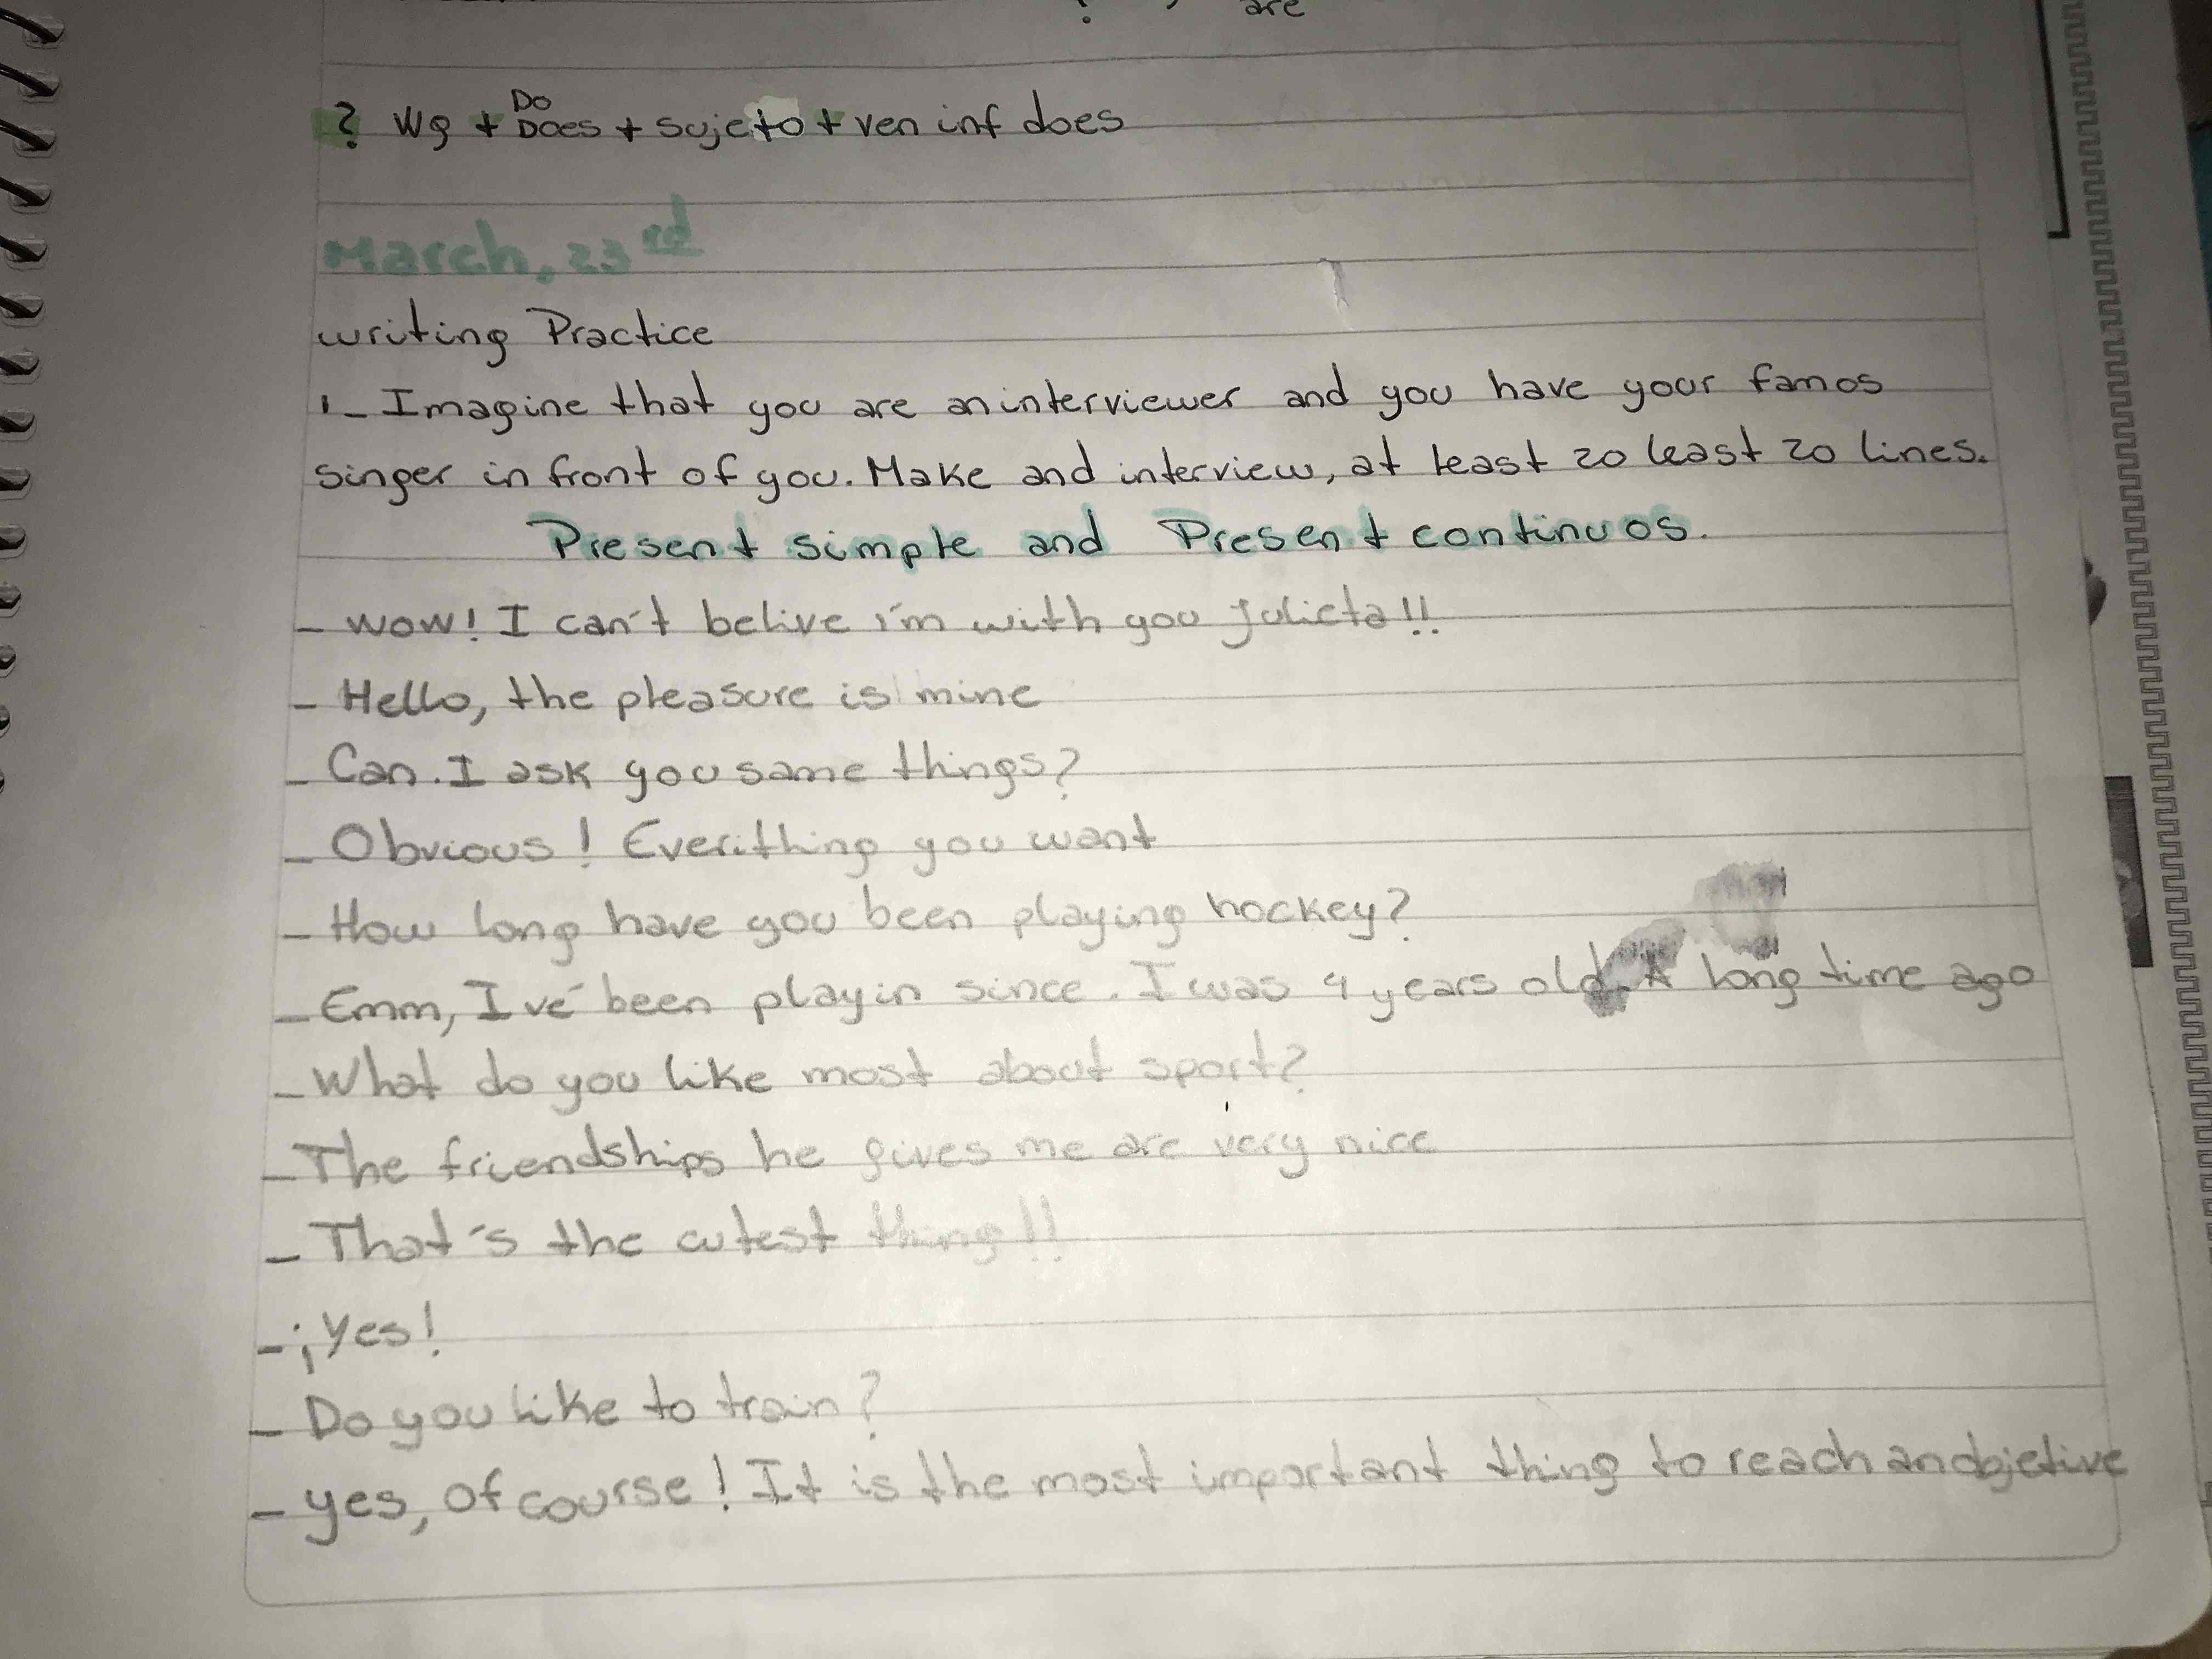 are
? Wq + Do Does + sujeto + ven inf does
March, 23rd
writing Practice
1_ Imagine that you are an interviewer and you have your famos
singer in front of you. Make and interview, at least 20 least 20 lines.
Present simple and Present continuos.
- wow! I can't belive i'm with you Julieta!!
- Hello, the pleasure is mine
- Can. I ask you same things?
- Obvious! Everithing you want
- How long have you been playing hockey?
- Emm, I ve' been playin since. I was 4 years old. A long time ago
- What do you like most about sport?
- The friendships he gives me are very nice
- That's the cutest thing!!
- ¡Yes!
- Do you like to train?
- yes, of course! It is the most important thing to reach an objetive